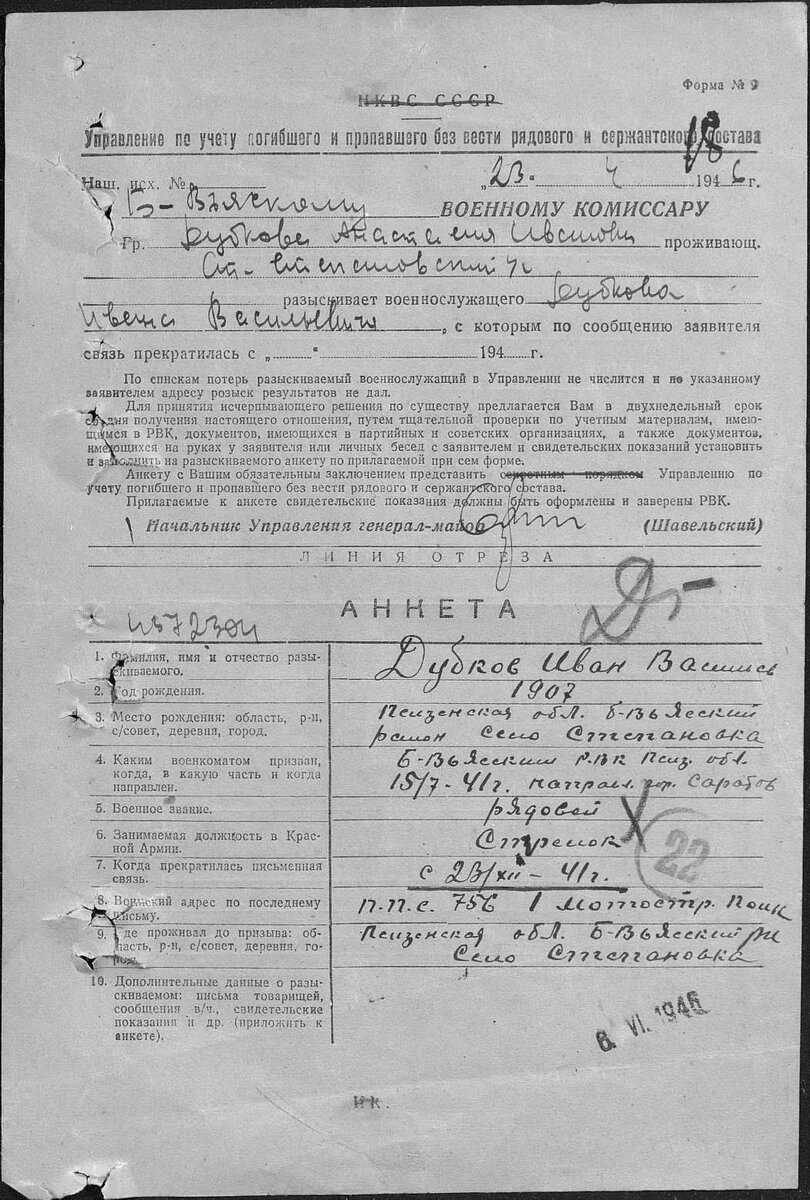 Форма № 9
НКВС СССР
Управление по учету погибшего и пропавшего без вести рядового и сержантского состава
Наш. исх. № „23“ 4 1946 г.
Б-Вьяскому ВОЕННОМУ КОМИССАРУ
Гр. Дубкова Анастасия Ивановн проживающ.
разыскивает военнослужащего Дубкова
Ивана Васильевича, с которым по сообщению заявителя
связь прекратилась с „ “ 194 г.
По спискам потерь разыскиваемый военнослужащий в Управлении не числится и по указанному
заявителем адресу розыск результатов не дал.
Для принятия исчерпывающего решения по существу предлагается Вам в двухнедельный срок
со дня получения настоящего отношения, путем тщательной проверки по учетным материалам, имею-
щимся в РВК, документов, имеющихся в партийных и советских организациях, а также документов,
имеющихся на руках у заявителя или личных бесед с заявителем и свидетельских показаний установить
и заполнить на разыскиваемого анкету по прилагаемой при сем форме.
Анкету с Вашим обязательным заключением представить секретным порядком Управлению по
учету погибшего и пропавшего без вести рядового и сержантского состава.
Прилагаемые к анкете свидетельские показания должны быть оформлены и заверены РВК.
Начальник Управления генерал-майор (Шавельский)
ЛИНИЯ ОТРЕЗА
АНКЕТА
1. Фамилия, имя и отчество разы-
скиваемого.
Дубков Иван Василь
2. Год рождения.
1907
3. Место рождения: область, р-н,
с/совет, деревня, город.
Пензенская обл. Б-Вьясский
район Село Степановка
4. Каким военкоматом призван,
когда, в какую часть и когда
направлен.
Б-Вьясским РВК Пенз. обл.
15/7-41г. направл. гор. Саратов
5. Военное звание.
рядовой
6. Занимаемая должность в Крас-
ной Армии.
Стрелок
22
7. Когда прекратилась письменная
связь.
с 23/XII-41г.
8. Воинский адрес по последнему
письму.
П.П.С. 756 1 мотостр. полк
9. Где проживал до призыва: об-
ласть, р-н, с/совет, деревня, го-
род.
Пензенская обл. Б-Вьясский рн
Село Степановка
10. Дополнительные данные о разы-
скиваемом: письма товарищей,
сообщения в/ч., свидетельские
показания и др. (приложить к
анкете).
6. VI. 1946
НК.